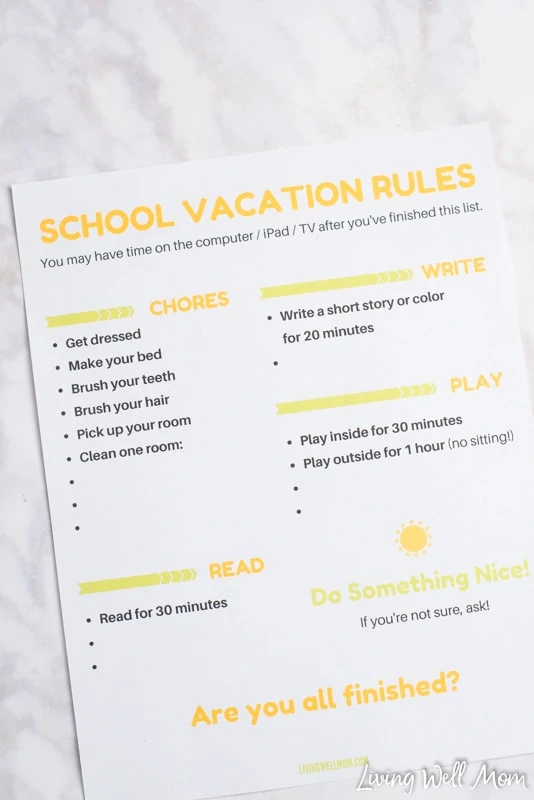 SCHOOL VACATION RULES
You may have time on the computer / iPad / TV after you've finished this list.
CHORES
• Get dressed
• Make your bed
• Brush your teeth
• Brush your hair
• Pick up your room
• Clean one room:
•
•
•
READ
• Read for 30 minutes
•
•
WRITE
• Write a short story or color
for 20 minutes
•
PLAY
• Play inside for 30 minutes
• Play outside for 1 hour (no sitting!)
•
•
Do Something Nice!
If you're not sure, ask!
Are you all finished?
LIVINGWELLMOM.COM
Living Well Mom